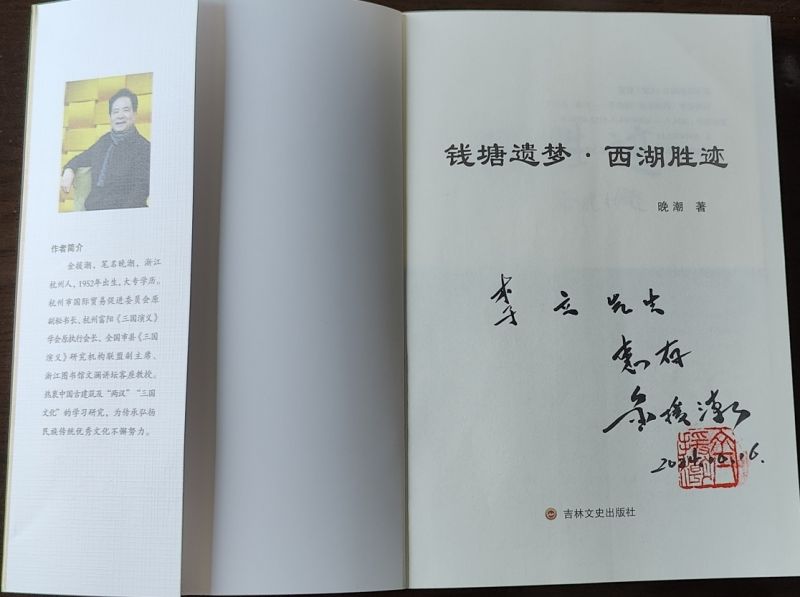 作者简介
金援潮，笔名晚潮，浙江
杭州人，1952年出生，大专学历。
杭州市国际贸易促进委员会原
副秘书长、杭州富阳《三国演义》
学会原执行会长、全国市县《三国
演义》研究机构联盟副主席、
浙江图书馆文澜讲坛客座教授。
热衷中国古建筑及“两汉”“三国
文化”的学习研究，为传承弘扬
民族传统优秀文化不懈努力。
钱塘遗梦·西湖胜迹
晚潮 著
李立先生
惠存
金援潮
吉林文史出版社